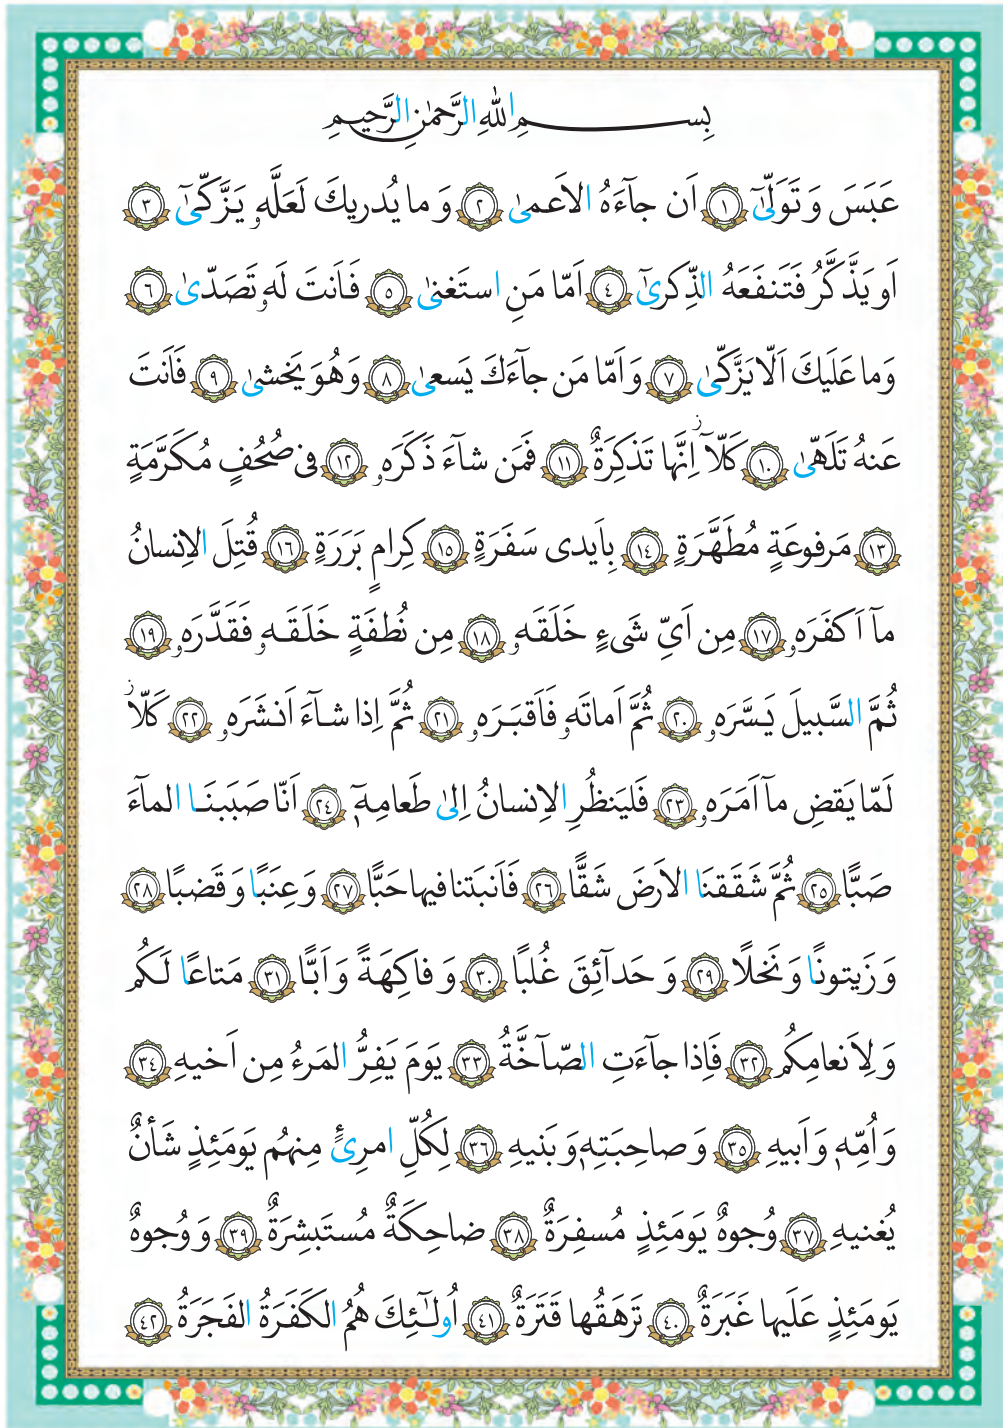 بِسمِ اللهِ الرَّحمٰنِ الرَّحیمِ
عَبَسَ وَ تَوَلّىٰٓ ١ اَن جآءَهُ الاَعمىٰ ٢ وَ ما یُدریكَ لَعَلَّهٗ یَزَّكّىٰٓ ٣
اَو یَذَّكَّرُ فَتَنفَعَهُ الذِّكرىٰٓ ٤ اَمّا مَنِ استَغنىٰ ٥ فَاَنتَ لَهٗ تَصَدّىٰ ٦
وَ ما عَلَیكَ اَلّا یَزَّكّىٰ ٧ وَ اَمّا مَن جآءَكَ یَسعىٰ ٨ وَ هُوَ یَخشىٰ ٩ فَاَنتَ
عَنهُ تَلَهّىٰ ١٠ كَلّآ ز اِنَّها تَذكِرَةٌ ١١ فَمَن شآءَ ذَكَرَهٗ ١٢ فى صُحُفٍ مُكَرَّمَةٍ
١٣ مَرفوعَةٍ مُطَهَّرَةٍ ١٤ بِاَیدى سَفَرَةٍ ١٥ كِرامٍ بَرَرَةٍ ١٦ قُتِلَ الاِنسانُ
مآ اَكفَرَهٗ ١٧ مِن اَىِّ شَىءٍ خَلَقَهٗ ١٨ مِن نُطفَةٍ خَلَقَهٗ فَقَدَّرَهٗ ١٩
ثُمَّ السَّبیلَ یَسَّرَهٗ ٢٠ ثُمَّ اَماتَهٗ فَاَقبَرَهٗ ٢١ ثُمَّ اِذا شآءَ اَنشَرَهٗ ٢٢ كَلّا ز
لَمّا یَقضِ مآ اَمَرَهٗ ٢٣ فَلیَنظُرِ الاِنسانُ اِلىٰ طَعامِهٖٓ ٢٤ اَنّا صَبَبنَا الماءَ
صَبًّا ٢٥ ثُمَّ شَقَقنَا الاَرضَ شَقًّا ٢٦ فَاَنبَتنا فیها حَبًّا ٢٧ وَ عِنَبًا وَ قَضبًا ٢٨
وَ زَیتونًا وَ نَخلًا ٢٩ وَ حَدآئِقَ غُلبًا ٣٠ وَ فاكِهَةً وَ اَبًّا ٣١ مَتاعًا لَكُم
وَ لِاَنعامِكُم ٣٢ فَاِذا جآءَتِ الصّآخَّةُ ٣٣ یَومَ یَفِرُّ المَرءُ مِن اَخیهِ ٣٤
وَ اُمِّهٖ وَ اَبیهِ ٣٥ وَ صاحِبَتِهٖ وَ بَنیهِ ٣٦ لِكُلِّ امرِئٍ مِنهُم یَومَئِذٍ شَأنٌ
یُغنیهِ ٣٧ وُجوهٌ یَومَئِذٍ مُسفِرَةٌ ٣٨ ضاحِكَةٌ مُستَبشِرَةٌ ٣٩ وَ وُجوهٌ
یَومَئِذٍ عَلَیها غَبَرَةٌ ٤٠ تَرهَقُها قَتَرَةٌ ٤١ اُولٰٓئِكَ هُمُ الكَفَرَةُ الفَجَرَةُ ٤٢